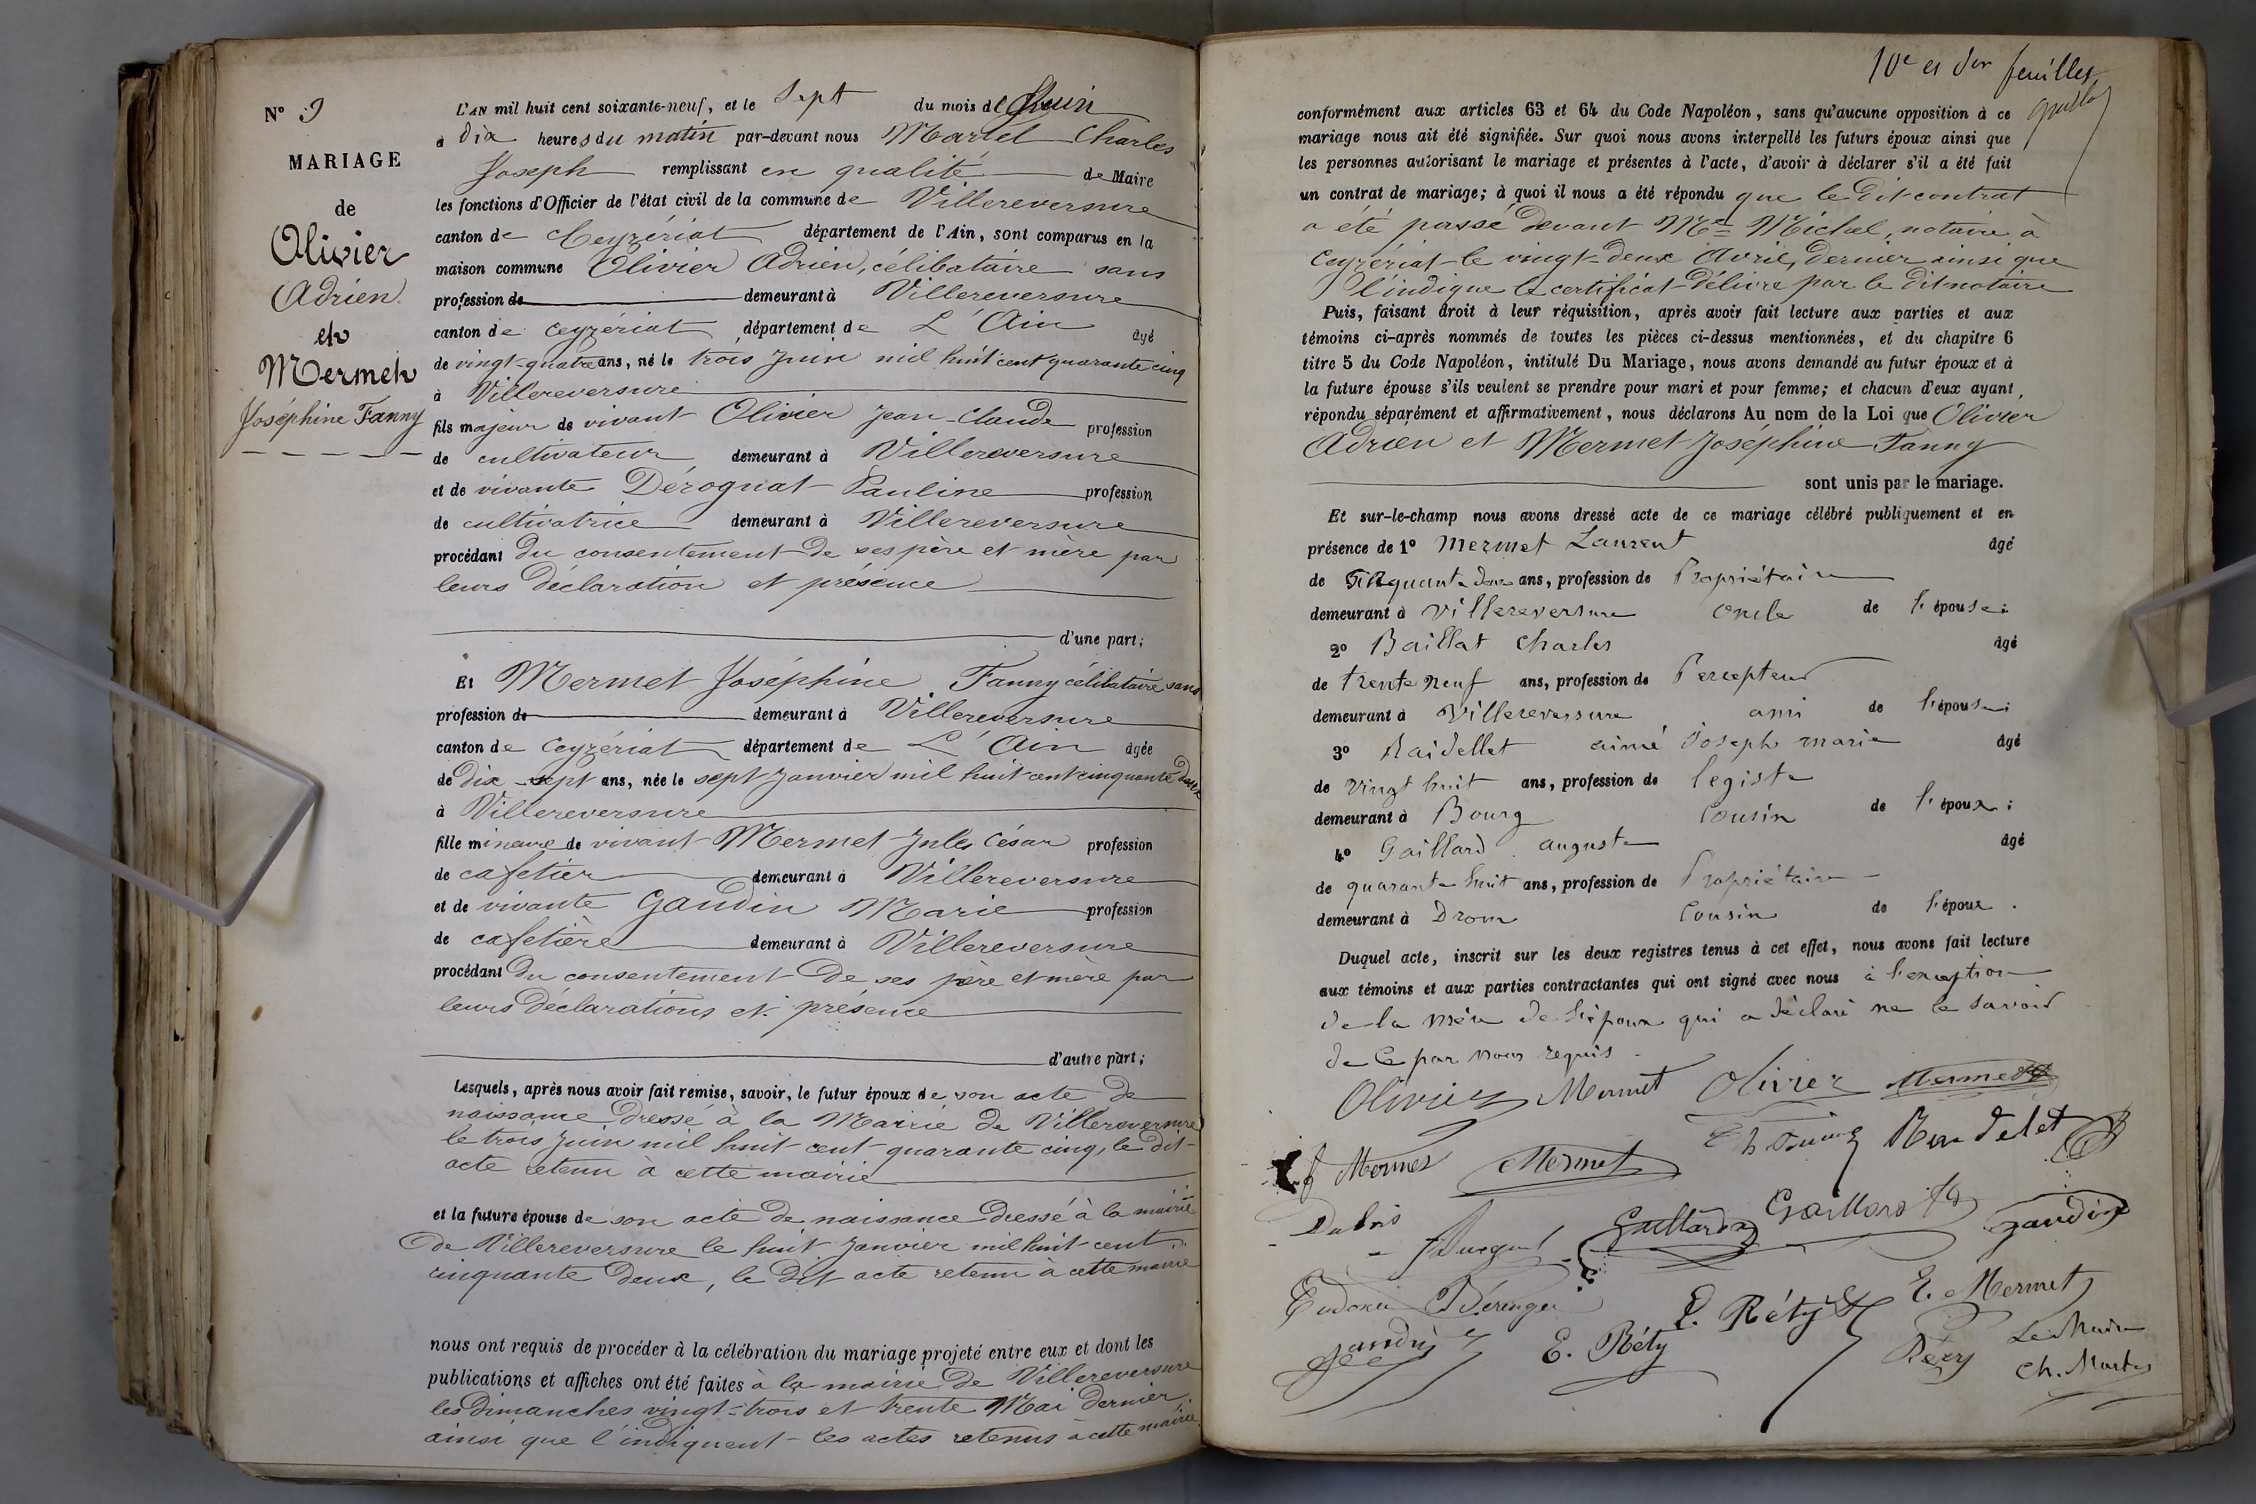 N° 9
MARIAGE
de
Olivier
Adrien
et
Mermet
Joséphine Fanny
L'AN mil huit cent soixante-neuf, et le Sept du mois de Juin
à dix heures du matin par-devant nous Martel Charles
Joseph remplissant en qualité de Maire
les fonctions d'Officier de l'état civil de la commune de Villereversure
canton de Ceyzériat département de l'Ain, sont comparus en la
maison commune Olivier Adrien, célibataire sans
profession de demeurant à Villereversure
canton de Ceyzériat département de L'Ain âgé
de vingt-quatre ans, né le trois Juin mil huit cent quarante cinq
à Villereversure
fils majeur de vivant Olivier Jean-Claude profession
de cultivateur demeurant à Villereversure
et de vivante Dérognat Pauline profession
de cultivatrice demeurant à Villereversure
procédant du consentement de ses père et mère par
leurs déclaration et présence
d'une part;
Et Mermet Joséphine Fanny célibataire sans
profession de demeurant à Villereversure
canton de Ceyzériat département de L'Ain âgée
de dix-sept ans, née le sept Janvier mil huit cent cinquante deux
à Villereversure
fille mineure de vivant Mermet Jules César profession
de cafetier demeurant à Villereversure
et de vivante Gaudin Marie profession
de cafetière demeurant à Villereversure
procédant du consentement de ses père et mère par
leurs déclarations et présence
d'autre part;
Lesquels, après nous avoir fait remise, savoir, le futur époux de son acte de
naissance dressé à la Mairie de Villereversure
le trois Juin mil huit-cent-quarante cinq, le dit-
acte retenu à cette mairie
et la future épouse de son acte de naissance dressé à la mairie
de Villereversure le huit Janvier mil huit-cent
cinquante deux, le dit acte retenu à cette mairie
nous ont requis de procéder à la célébration du mariage projeté entre eux et dont les
publications et affiches ont été faites à la mairie de Villereversure
les Dimanches vingt-trois et trente Mai dernier
ainsi que l'indiquent les actes retenus à cette mairie
10e et der feuillet
conformément aux articles 63 et 64 du Code Napoléon, sans qu'aucune opposition à ce
mariage nous ait été signifiée. Sur quoi nous avons interpellé les futurs époux ainsi que
les personnes autorisant le mariage et présentes à l'acte, d'avoir à déclarer s'il a été fait
un contrat de mariage; à quoi il nous a été répondu que le dit contrat
a été passé devant Me Michel, notaire à
Ceyzériat le vingt-deux Avril, dernier ainsi que
l'indique le certificat délivré par le dit notaire
Puis, faisant droit à leur réquisition, après avoir fait lecture aux parties et aux
témoins ci-après nommés de toutes les pièces ci-dessus mentionnées, et du chapitre 6
titre 5 du Code Napoléon, intitulé Du Mariage, nous avons demandé au futur époux et à
la future épouse s'ils veulent se prendre pour mari et pour femme; et chacun d'eux ayant
répondu séparément et affirmativement, nous déclarons Au nom de la Loi que Olivier
Adrien et Mermet Joséphine Fanny
sont unis par le mariage.
Et sur-le-champ nous avons dressé acte de ce mariage célébré publiquement et en
présence de 1° Mermet Laurent âgé
de Cinquante deux ans, profession de Propriétaire
demeurant à Villereversure oncle de l'épouse;
2° Baillat Charles âgé
de trente neuf ans, profession de Percepteur
demeurant à Villereversure ami de l'épouse;
3° aimé Joseph marie âgé
de vingt huit ans, profession de légiste
demeurant à Bourg Cousin de l'époux;
4° Gaillard auguste âgé
de quarante huit ans, profession de Propriétaire
demeurant à Drom Cousin de l'époux.
Duquel acte, inscrit sur les deux registres tenus à cet effet, nous avons fait lecture
aux témoins et aux parties contractantes qui ont signé avec nous à l'exception
de la mère de l'époux qui a déclaré ne le savoir
de ce par nous requis
Olivier Mermet Olivier Mermet
Mermet Mermet
Dubois Gaillard Gaillard Gaudin
Bérenger E. Réty E. Mermet
Gaudin E. Réty Réty Le Maire
Ch. Martel